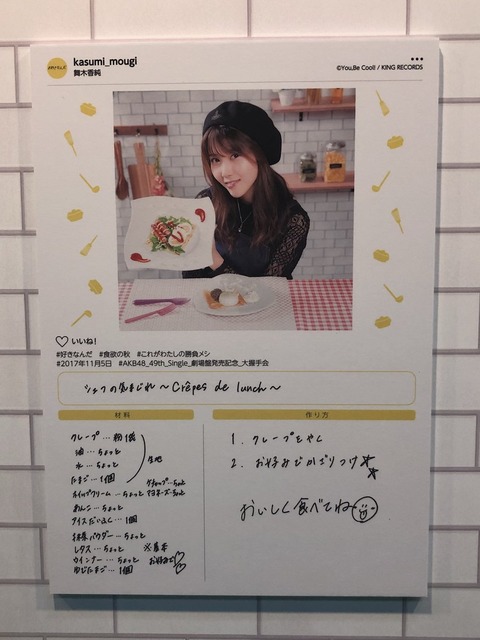 kasumi_mougi
舞木香純
©You,Be Cool! / KING RECORDS
いいね!
#好きなんだ #食欲の秋 #これがわたしの勝負メシ
#2017年11月5日 #AKB48_49th_Single_劇場盤発売記念_大握手会
シェフの気まぐれ～Crêpes de lunch～
材料
作り方
クレープ…粉1袋
油…ちょっと
水…ちょっと
たまご…1個
生地
ケチャップ…ちょっと
マヨネーズ…ちょっと
ホイップクリーム…ちょっと
あんこ…ちょっと
アイスだいふく…1個
抹茶パウダー…ちょっと
レタス…ちょっと
ウインナー…ちょっと
ゆでたまご…1個
※基本
お好みで
1. クレープをやく
2. お好みでかざりつけ
おいしく食べてね